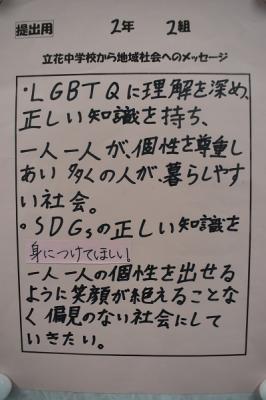 提出用 2年 2組
立花中学校から地域社会へのメッセージ
・LGBTQに理解を深め、
正しい知識を持ち、
一人一人が、個性を尊重し
あい多くの人が、暮らしやす
い社会。
・SDGsの正しい知識を
身につけてほしい。
一人一人の個性を出せる
ように笑顔が絶えることな
く偏見のない社会にして
いきたい。